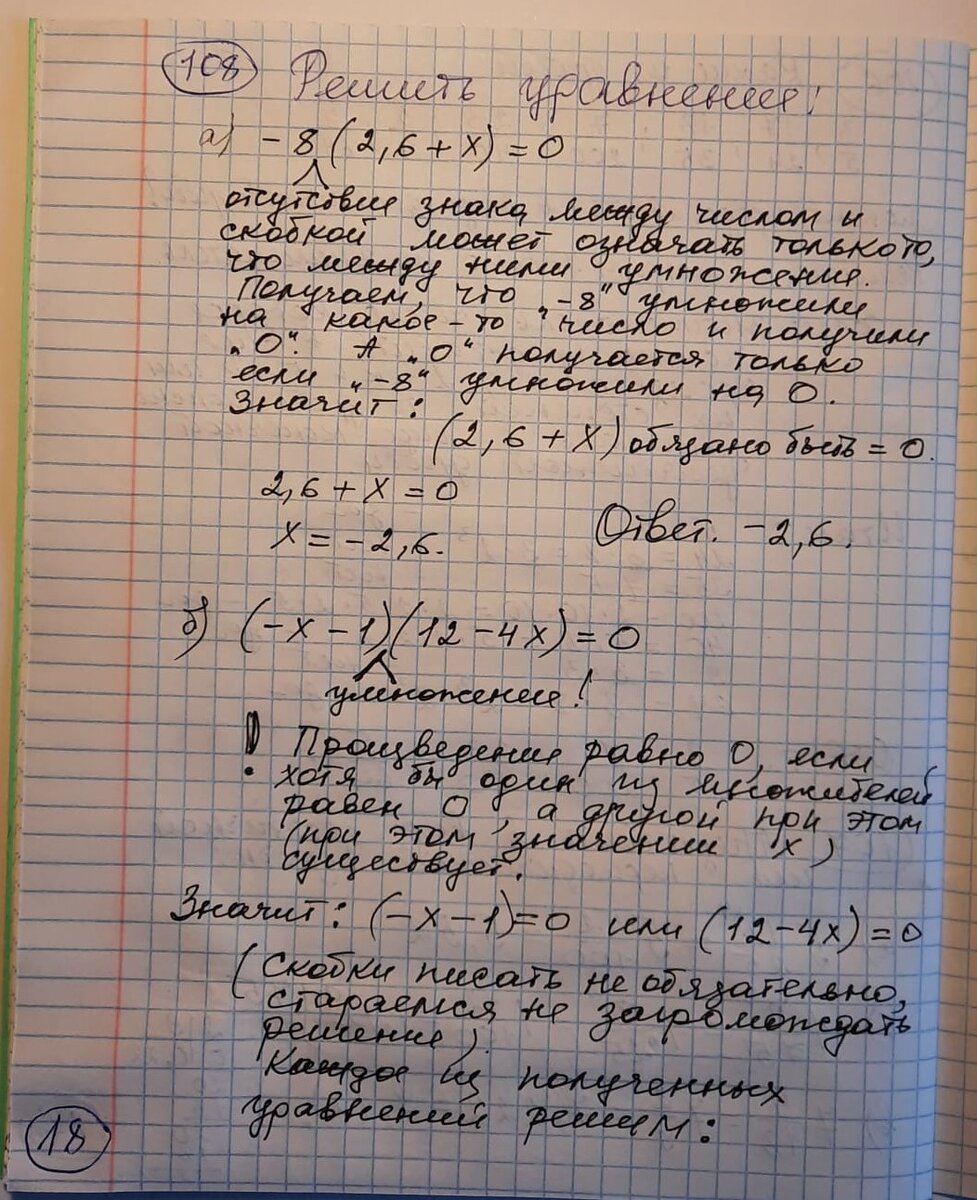 108 Решить уравнения:
а) -8(2,6+x)=0
отсутствие знака между числом и
скобкой может означать только то,
что между ними умножение.
Получаем, что „-8“ умножили
на какое-то число и получили
„0“. А „0“ получается только
если „-8“ умножили на 0.
Значит:
(2,6+x) обязано быть = 0.
2,6+x=0
x=-2,6. Ответ. -2,6.
б) (-x-1)(12-4x)=0
умножение!
! Произведение равно 0, если
хотя бы один из множителей
равен 0, а другой при этом
(при этом значении x)
существует.
Значит: (-x-1)=0 или (12-4x)=0
(Скобки писать не обязательно,
стараемся не загромождать
решение).
Каждое из полученных
уравнений решим:
18